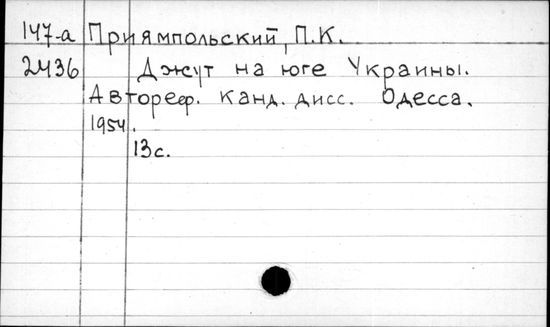 147-а Приямпольский, П.К.
2436 Джут на юге Украины.
Автореф. канд. дисс. Одесса.
1954.
13с.